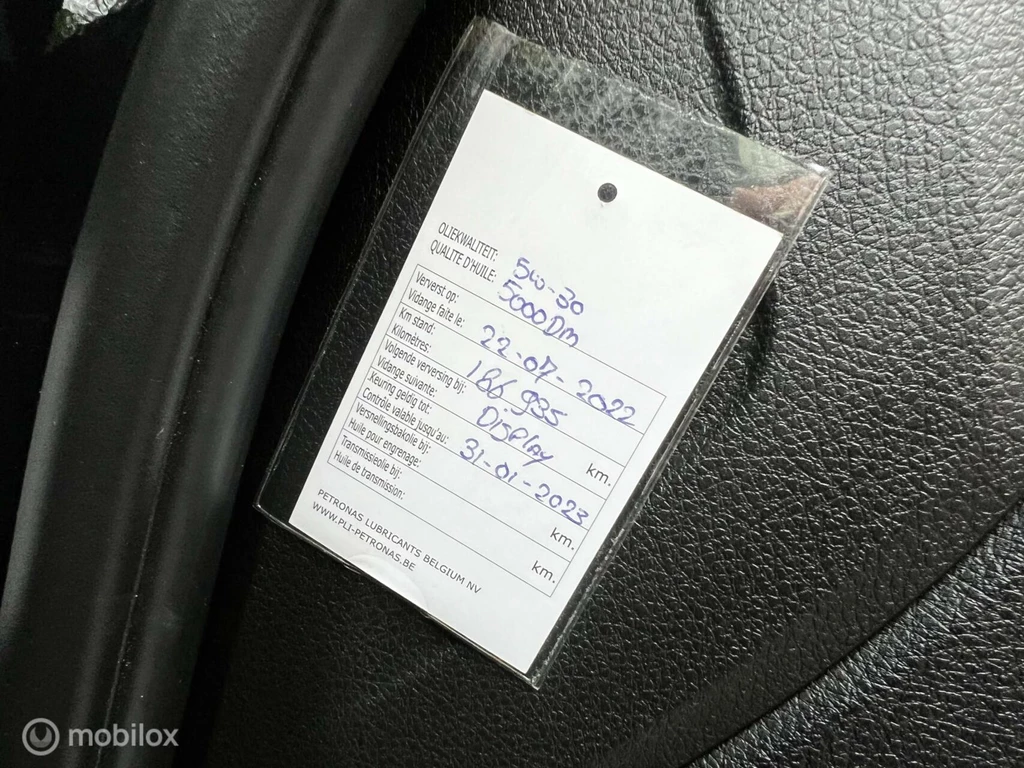 OLIEKWALITEIT:
QUALITE D'HUILE: 5W-30
5000Dm
Ververst op:
Vidange faite le: 22-07-2022
Km stand:
Kilomètres: 186.935 km.
Volgende verversing bij:
Vidange suivante: DISPlAY
Keuring geldig tot:
Contrôle valable jusqu'au: 31-01-2023
Versnellingsbakolie bij:
Huile pour engrenage: km.
Transmissieolie bij:
Huile de transmission: km.
PETRONAS LUBRICANTS BELGIUM NV
WWW.PLI-PETRONAS.BE
mobilox